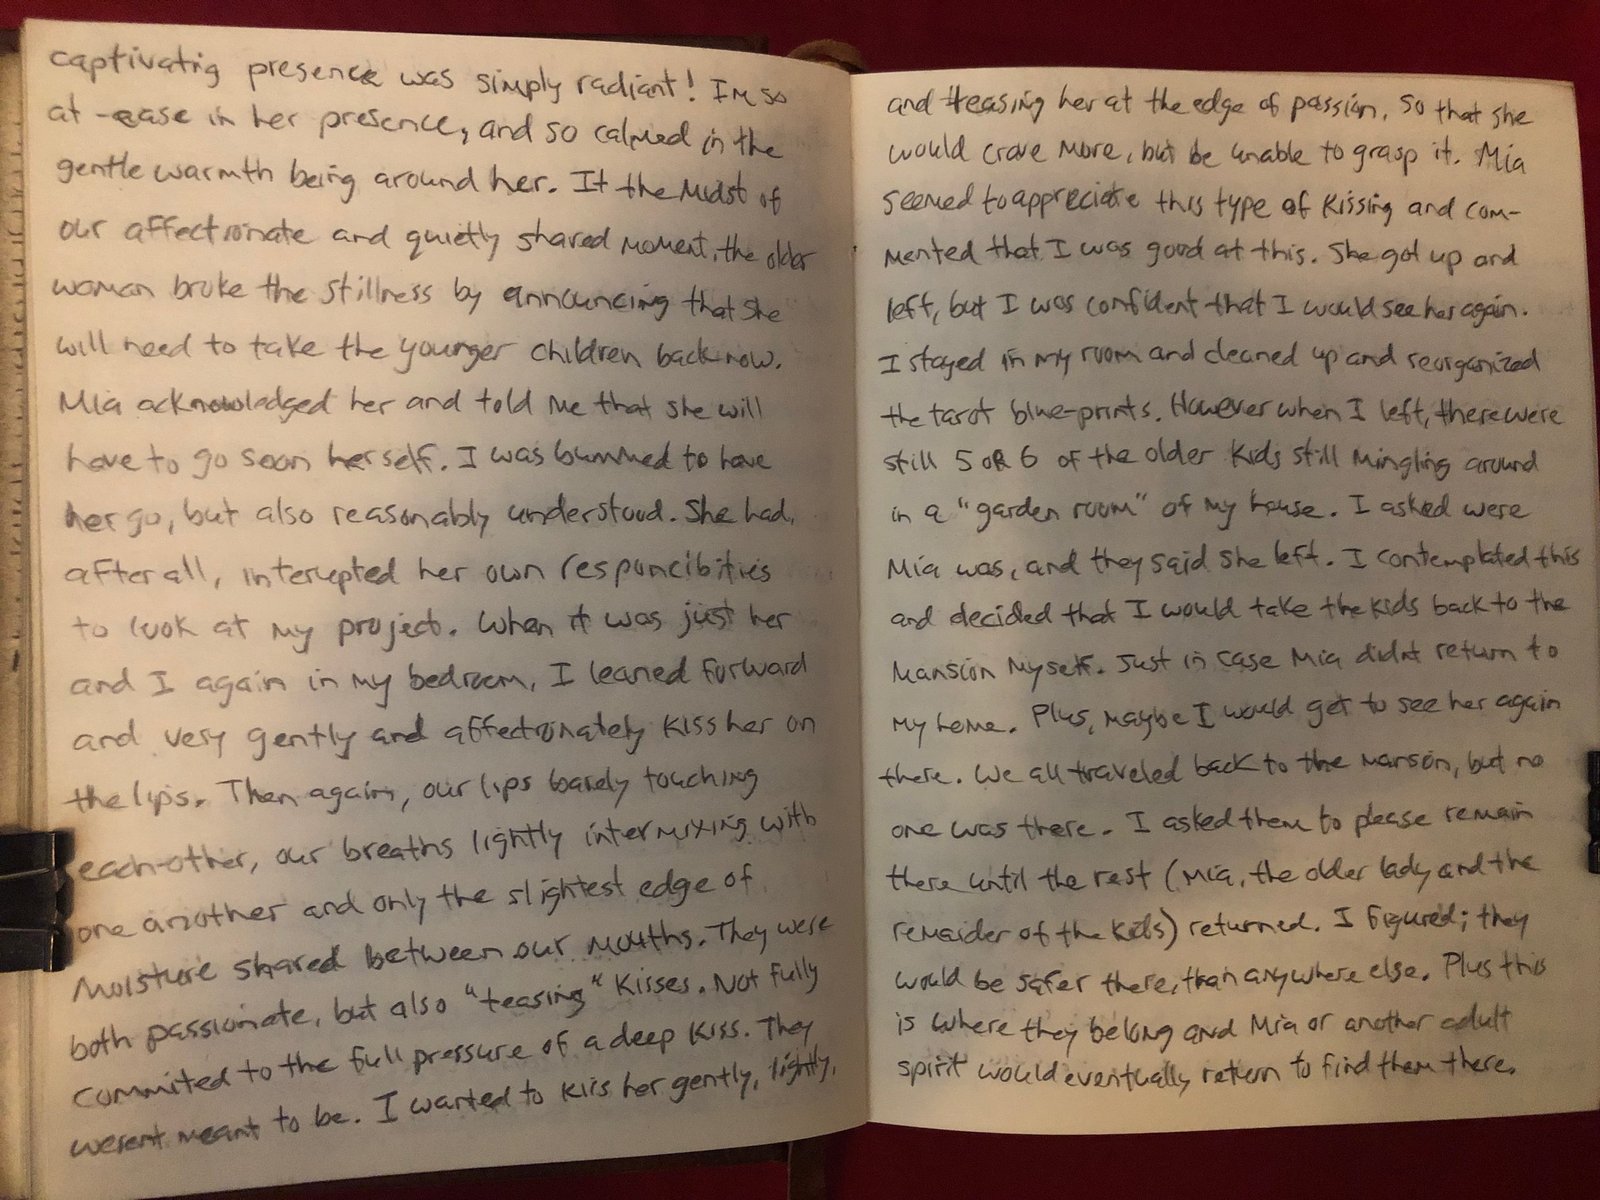 captivating presence was simply radiant! Im so
at-ease in her presence, and so calmed in the
gentle warmth being around her. It the midst of
our affectionate and quietly shared moment, the older
woman broke the stillness by announcing that she
will need to take the younger children back now.
Mia acknowledged her and told me that she will
have to go soon herself. I was bummed to have
her go, but also reasonably understood. She had,
after all, interupted her own responcibities
to look at my project. When it was just her
and I again in my bedroom, I leaned forward
and very gently and affectionately kiss her on
the lips. Then again, our lips barely touching
each-other, our breaths lightly intermixing with
one another and only the slightest edge of
moisture shared between our mouths. They were
both passionate, but also "teasing" kisses. Not fully
commited to the full pressure of a deep kiss. They
werent meant to be. I wanted to kiss her gently, lightly,
and teasing her at the edge of passion, so that she
would crave more, but be unable to grasp it. Mia
seemed to appreciate this type of kissing and com-
mented that I was good at this. She got up and
left, but I was confident that I would see her again.
I stayed in my room and cleaned up and reorganized
the tarot blue-prints. However when I left, there were
still 5 OR 6 of the older kids still mingling around
in a "garden room" of my house. I asked were
Mia was, and they said she left. I contemplated this
and decided that I would take the kids back to the
mansion myself. Just in case Mia didnt return to
my home. Plus, maybe I would get to see her again
there. We all traveled back to the mansion, but no
one was there. I asked them to please remain
there until the rest (Mia, the older lady and the
remaider of the kids) returned. I figured; they
would be safer there, than anywhere else. Plus this
is where they belong and Mia or another adult
spirit would eventually return to find them there.